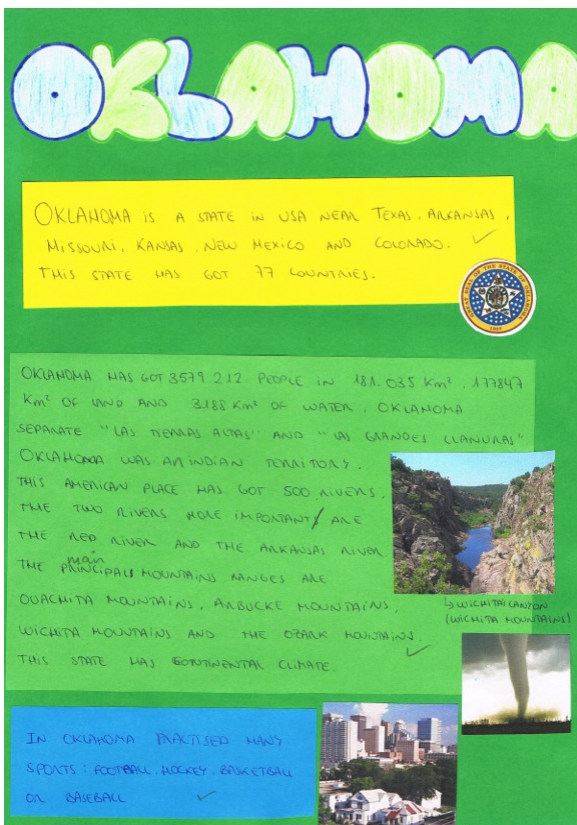 OKLAHOMA
OKLAHOMA IS A STATE IN USA NEAR TEXAS, ARKANSAS,
MISSOURI, KANSAS, NEW MEXICO AND COLORADO.
THIS STATE HAS GOT 77 COUNTRIES.
GREAT SEAL OF THE STATE OF OKLAHOMA
1907
OKLAHOMA HAS GOT 3579 212 PEOPLE IN 181.035 Km², 177847
Km² OF LAND AND 3188 Km² OF WATER. OKLAHOMA
SEPARATE "LAS TIERRAS ALTAS" AND "LAS GRANDES LLANURAS"
OKLAHOMA WAS AN INDIAN TERRITORY.
THIS AMERICAN PLACE HAS GOT 500 RIVERS.
THE TWO RIVERS MORE IMPORTANTS ARE
THE RED RIVER AND THE ARKANSAS RIVER.
main
THE PRINCIPALS MOUNTAINS RANGES ARE
OUACHITA MOUNTAINS, ARBUCKE MOUNTAINS,
WICHITA MOUNTAINS AND THE OZARK MOUNTAINS.
THIS STATE HAS CONTINENTAL CLIMATE.
↳ WICHITA CANYON
(WICHITA MOUNTAINS)
IN OKLAHOMA PRACTISED MANY
SPORTS: FOOTBALL, HOCKEY, BASKETBALL
OR BASEBALL